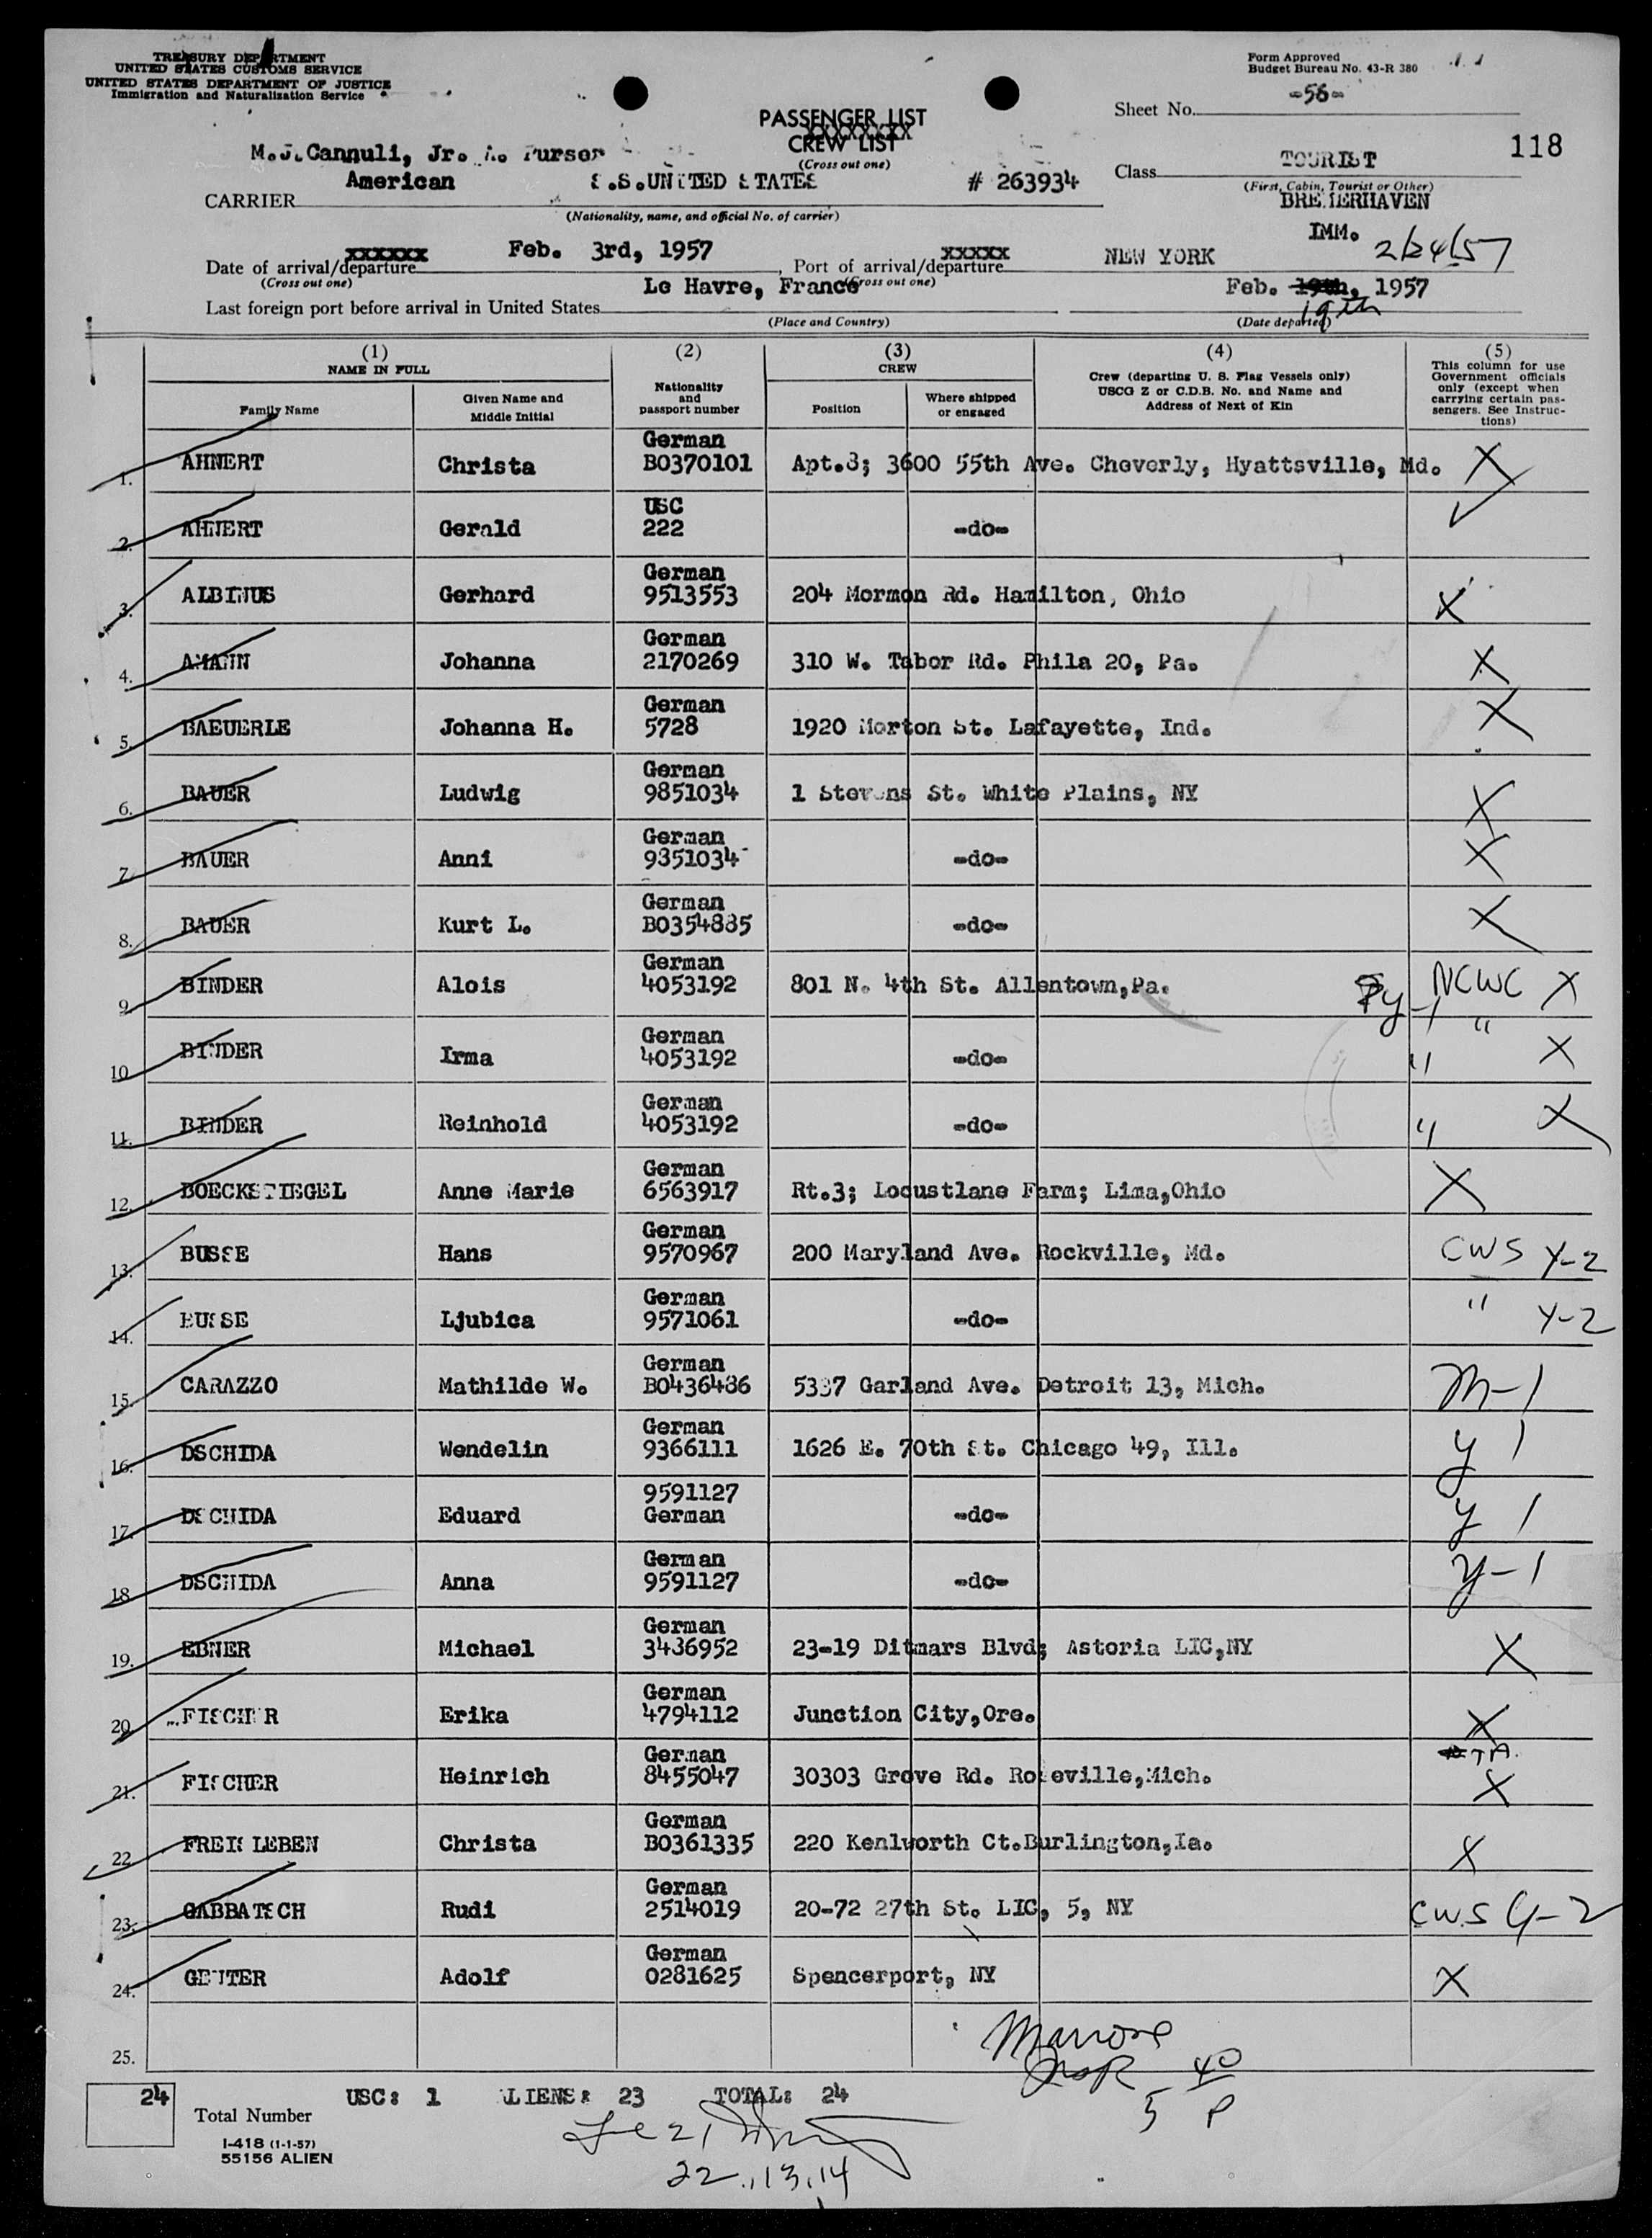 TREASURY DEPARTMENT
UNITED STATES CUSTOMS SERVICE
UNITED STATES DEPARTMENT OF JUSTICE
Immigration and Naturalization Service
Form Approved
Budget Bureau No. 43-R 380
PASSENGER LIST
CREW LIST
XXXXXXXX
(Cross out one)
Sheet No. -56-
118
M.J.Cannuli, Jr. Purser
CARRIER American S.S.UNITED STATES # 263934
(Nationality, name, and official No. of carrier)
Class TOURIST
(First, Cabin, Tourist or Other)
BREMERHAVEN
IMM.
2/24/57
Date of arrival/departure xxxxxx Feb. 3rd, 1957, Port of arrival/departure xxxxx NEW YORK
(Cross out one) (Cross out one)
Last foreign port before arrival in United States Le Havre, France Feb. 19th, 1957
19th
(Place and Country) (Date departed)
(1) NAME IN FULL
Family Name
Given Name and Middle Initial
(2) Nationality and passport number
(3) CREW
Position
Where shipped or engaged
(4) Crew (departing U. S. Flag Vessels only) USCG Z or C.D.B. No. and Name and Address of Next of Kin
(5) This column for use Government officials only (except when carrying certain passengers. See Instructions)
1. AHNERT Christa German B0370101 Apt.3; 3600 55th Ave. Cheverly, Hyattsville, Md. X
2. AHNERT Gerald USC 222 -do- ✓
3. ALBINUS Gerhard German 9513553 204 Mormon Rd. Hamilton, Ohio X
4. AMANN Johanna German 2170269 310 W. Tabor Rd. Phila 20, Pa. X
5. BAEUERLE Johanna H. German 5728 1920 Morton St. Lafayette, Ind. X
6. BAUER Ludwig German 9851034 1 Stevens St. White Plains, NY X
7. BAUER Anni German 9851034 -do- X
8. BAUER Kurt L. German B0354885 -do- X
9. BINDER Alois German 4053192 801 N. 4th St. Allentown,Pa. y-1 NCWC X
10. BINDER Irma German 4053192 -do- " " X
11. BINDER Reinhold German 4053192 -do- " X
12. BOECKSTIEGEL Anne Marie German 6563917 Rt.3; Locustlane Farm; Lima,Ohio X
13. BUSSE Hans German 9570967 200 Maryland Ave. Rockville, Md. CWS Y-2
14. BUSSE Ljubica German 9571061 -do- " Y-2
15. CARAZZO Mathilde W. German B0436486 5337 Garland Ave. Detroit 13, Mich. M-1
16. DSCHIDA Wendelin German 9366111 1626 E. 70th St. Chicago 49, Ill. y 1
17. DSCHIDA Eduard 9591127 German -do- y 1
18. DSCHIDA Anna German 9591127 -do- y-1
19. EBNER Michael German 3436952 23-19 Ditmars Blvd; Astoria LIC,NY X
20. FISCHER Erika German 4794112 Junction City,Ore. X
21. FISCHER Heinrich German 8455047 30303 Grove Rd. Roseville,Mich. X
22. FREISLEBEN Christa German B0361335 220 Kenlworth Ct.Burlington,Ia. X
23. GABBATSCH Rudi German 2514019 20-72 27th St. LIC, 5, NY CWS Y-2
24. GEUTER Adolf German 0281625 Spencerport, NY X
25.
24 USC: 1 ALIENS: 23 TOTAL: 24
Total Number
I-418 (1-1-57)
55156 ALIEN
22.,13,14